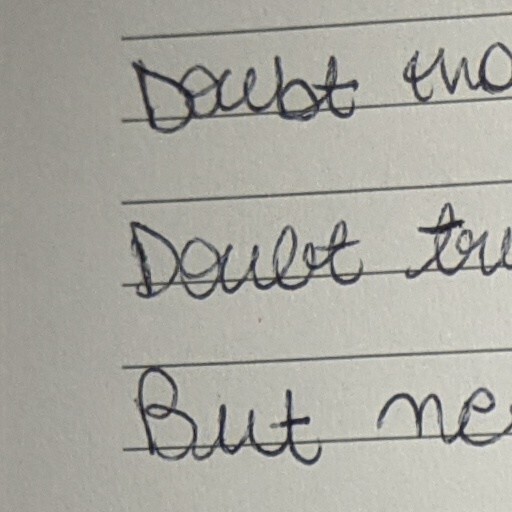 Doubt tho
Doubt tru
But ne